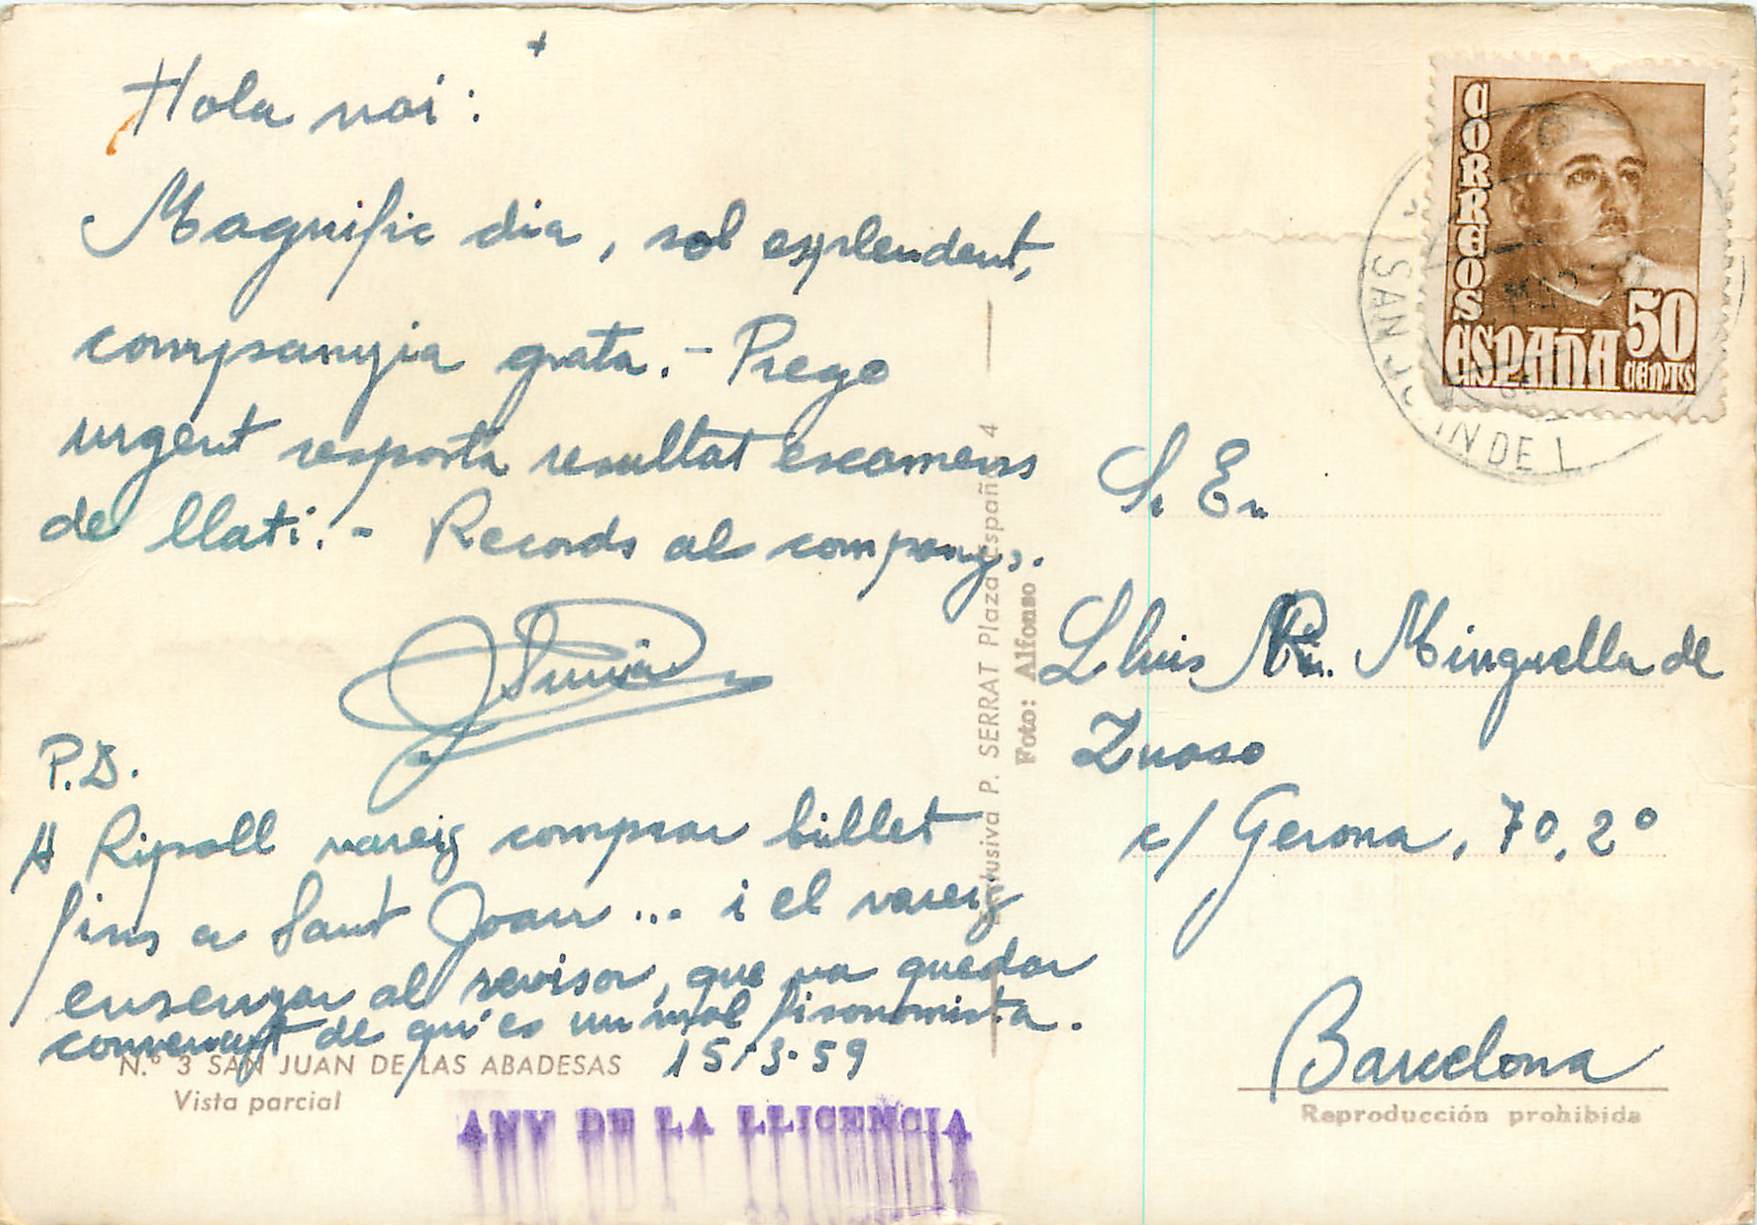 +
Hola noi:
Magnific dia, sol esplendent,
companyia grata.- Prego
urgent resposta resultat examens
de llati.- Records als companys.
P.D.
A Ripoll vareig comprar billet
fins a Sant Joan... i el vareig
ensenyar al revisor, que va quedar
convençut de qu'es un mal fisonomista.
15-3-59
N.º 3 SAN JUAN DE LAS ABADESAS
Vista parcial
ANY DE LA LLICENCIA
Exclusiva P. SERRAT Plaza España 4
Foto: Alfonso
CORREOS
ESPAÑA 50
CENTS
SAN JUAN DE L
Sr En
Lluis Mª. Minguella de
Zuaso
c/ Gerona, 70, 2º
Barcelona
Reproducción prohibida